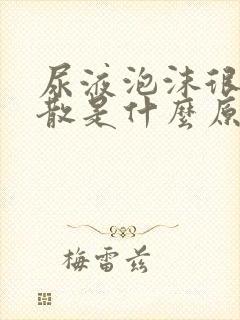 尿液泡沫很
散是什麼原
梅雷茲